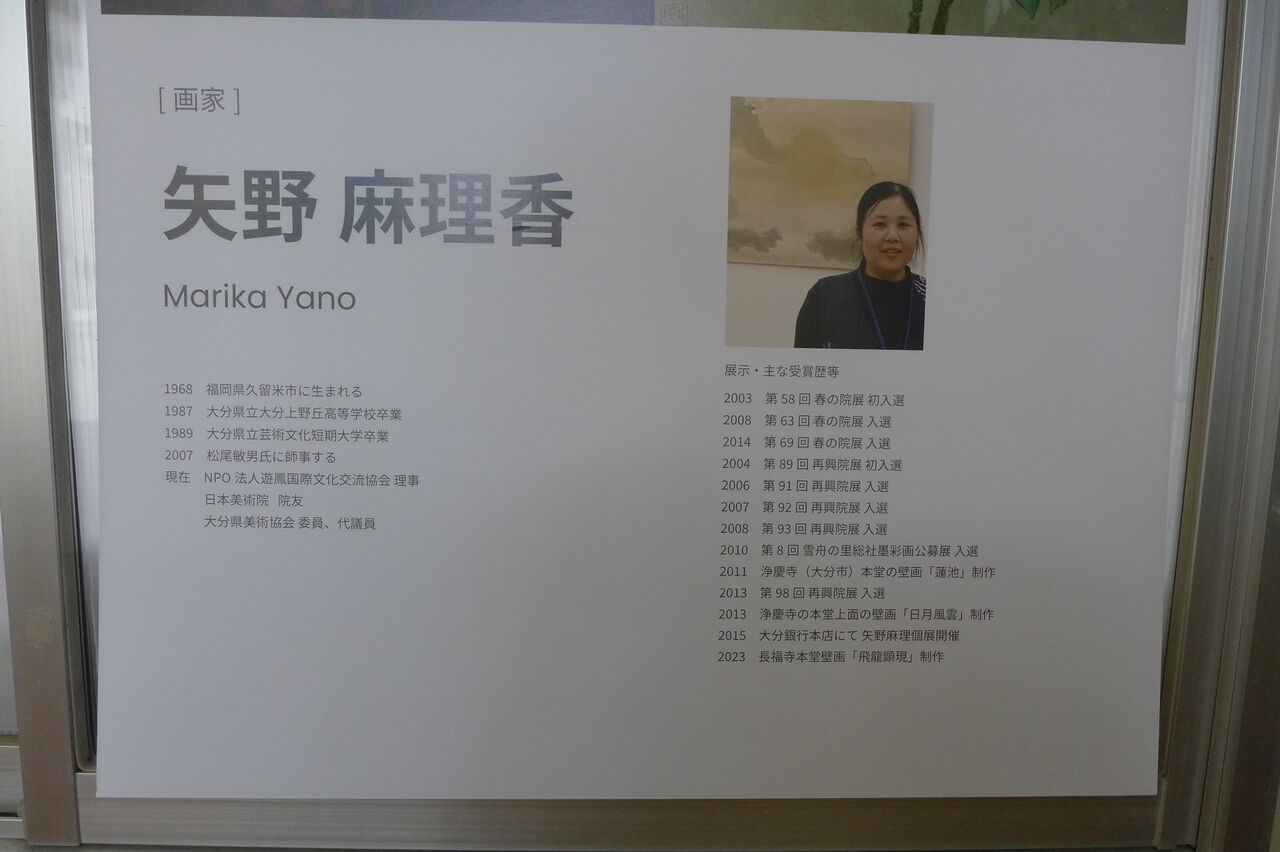 [ 画家 ]
矢野 麻理香
Marika Yano
1968 福岡県久留米市に生まれる
1987 大分県立大分上野丘高等学校卒業
1989 大分県立芸術文化短期大学卒業
2007 松尾敏男氏に師事する
現在 NPO 法人遊鳳国際文化交流協会 理事
日本美術院 院友
大分県美術協会 委員、代議員
展示・主な受賞歴等
2003 第 58 回 春の院展 初入選
2008 第 63 回 春の院展 入選
2014 第 69 回 春の院展 入選
2004 第 89 回 再興院展 初入選
2006 第 91 回 再興院展 入選
2007 第 92 回 再興院展 入選
2008 第 93 回 再興院展 入選
2010 第 8 回 雪舟の里総社墨彩画公募展 入選
2011 浄慶寺（大分市）本堂の壁画「蓮池」制作
2013 第 98 回 再興院展 入選
2013 浄慶寺の本堂上面の壁画「日月風雲」制作
2015 大分銀行本店にて 矢野麻理個展開催
2023 長福寺本堂壁画「飛龍顕現」制作